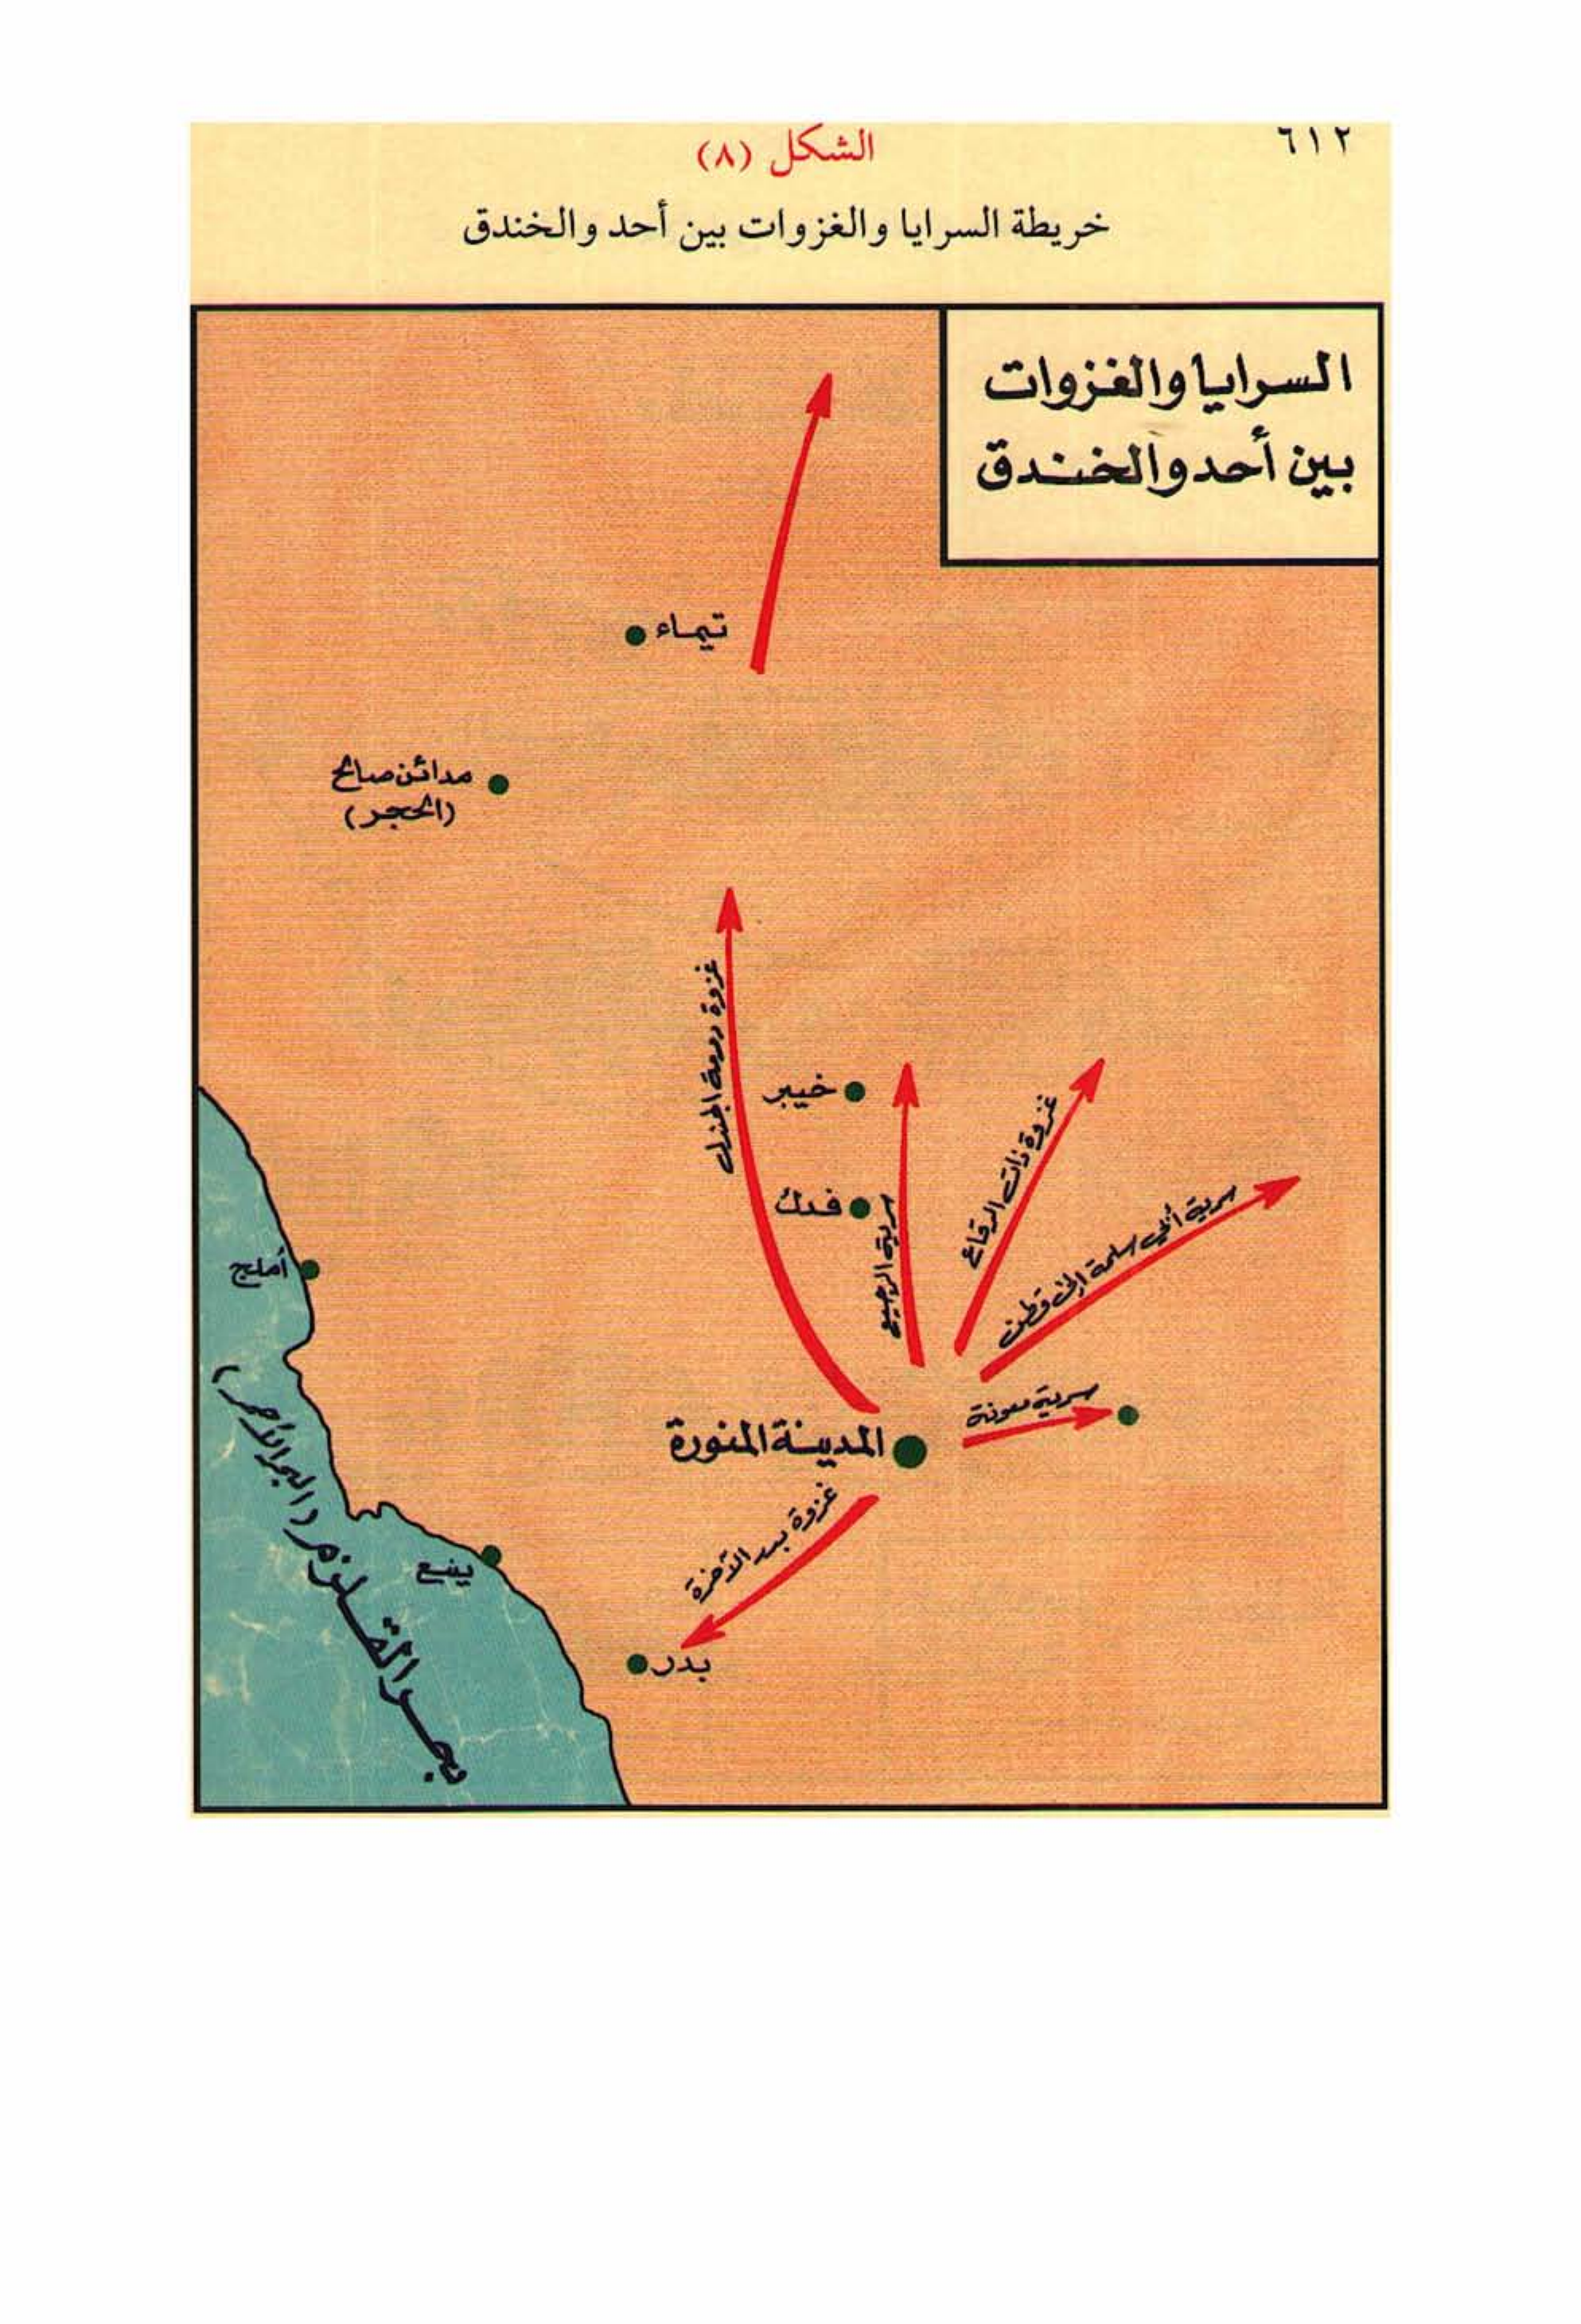 ٦١٢
الشكل (٨)
خريطة السرايا والغزوات بين أحد والخندق
السرايا والغزوات
بين أحد والخندق
تيماء
مدائن صالح
(الحجر)
غزوة دومة الجندل
خيبر
فدك
سرية الرجيع
غزوة ذات الرقاع
سرية أبي سلمة إلى قطن
سرية معونة
المدينة المنورة
غزوة بدر الآخرة
بدر
أملج
ينبع
بحر القلزم (البحر الأحمر)